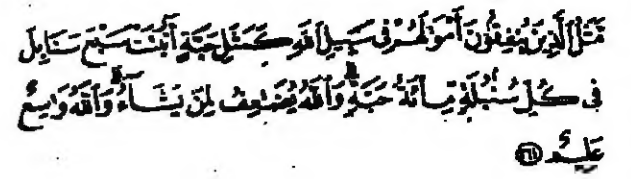 مَّثَلُ ٱلَّذِينَ يُنفِقُونَ أَمْوَٰلَهُمْ فِى سَبِيلِ ٱللَّهِ كَمَثَلِ حَبَّةٍ أَنۢبَتَتْ سَبْعَ سَنَابِلَ
فِى كُلِّ سُنۢبُلَةٍ مِّا۟ئَةُ حَبَّةٍ وَٱللَّهُ يُضَٰعِفُ لِمَن يَشَآءُ وَٱللَّهُ وَٰسِعٌ
عَلِيمٌ ٢٦١